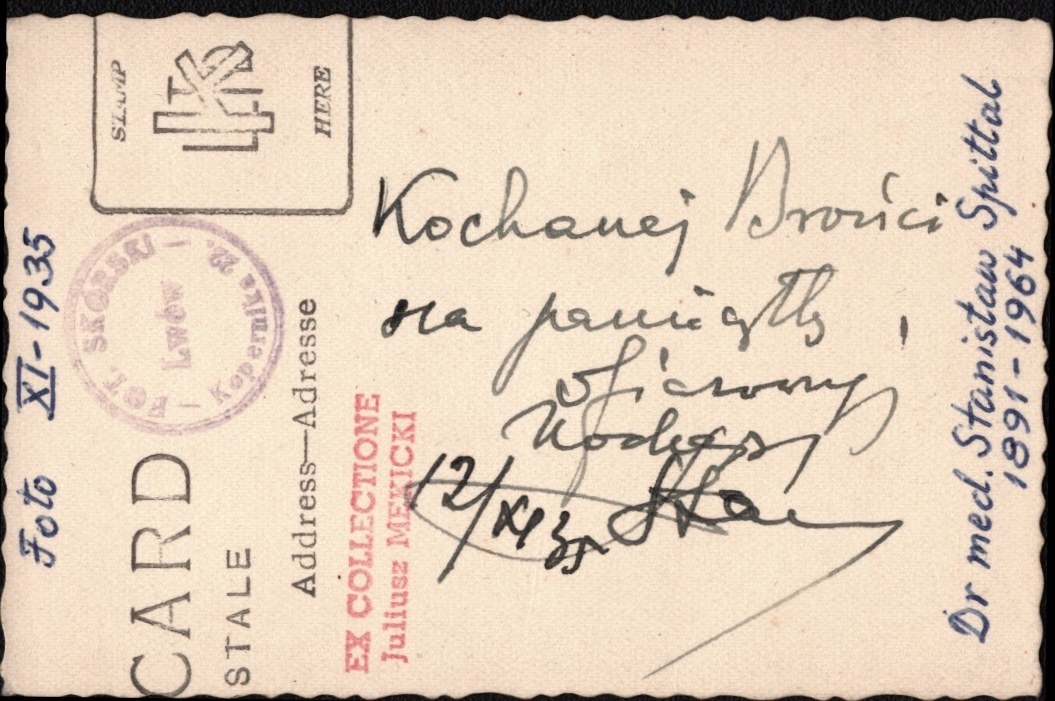 STAMP
HERE
Kochanej Brońci
na pamiątkę,
ofiarowuję
Kochający
Stas
12/XI 35
Dr med. Stanisław Spittal
1891-1964
Foto XI-1935
FOT. SKÓRSKI
Lwów
Kopernika 22.
CARD
STALE
Address—Adresse
EX COLLECTIONE
Juliusz MEKICKI